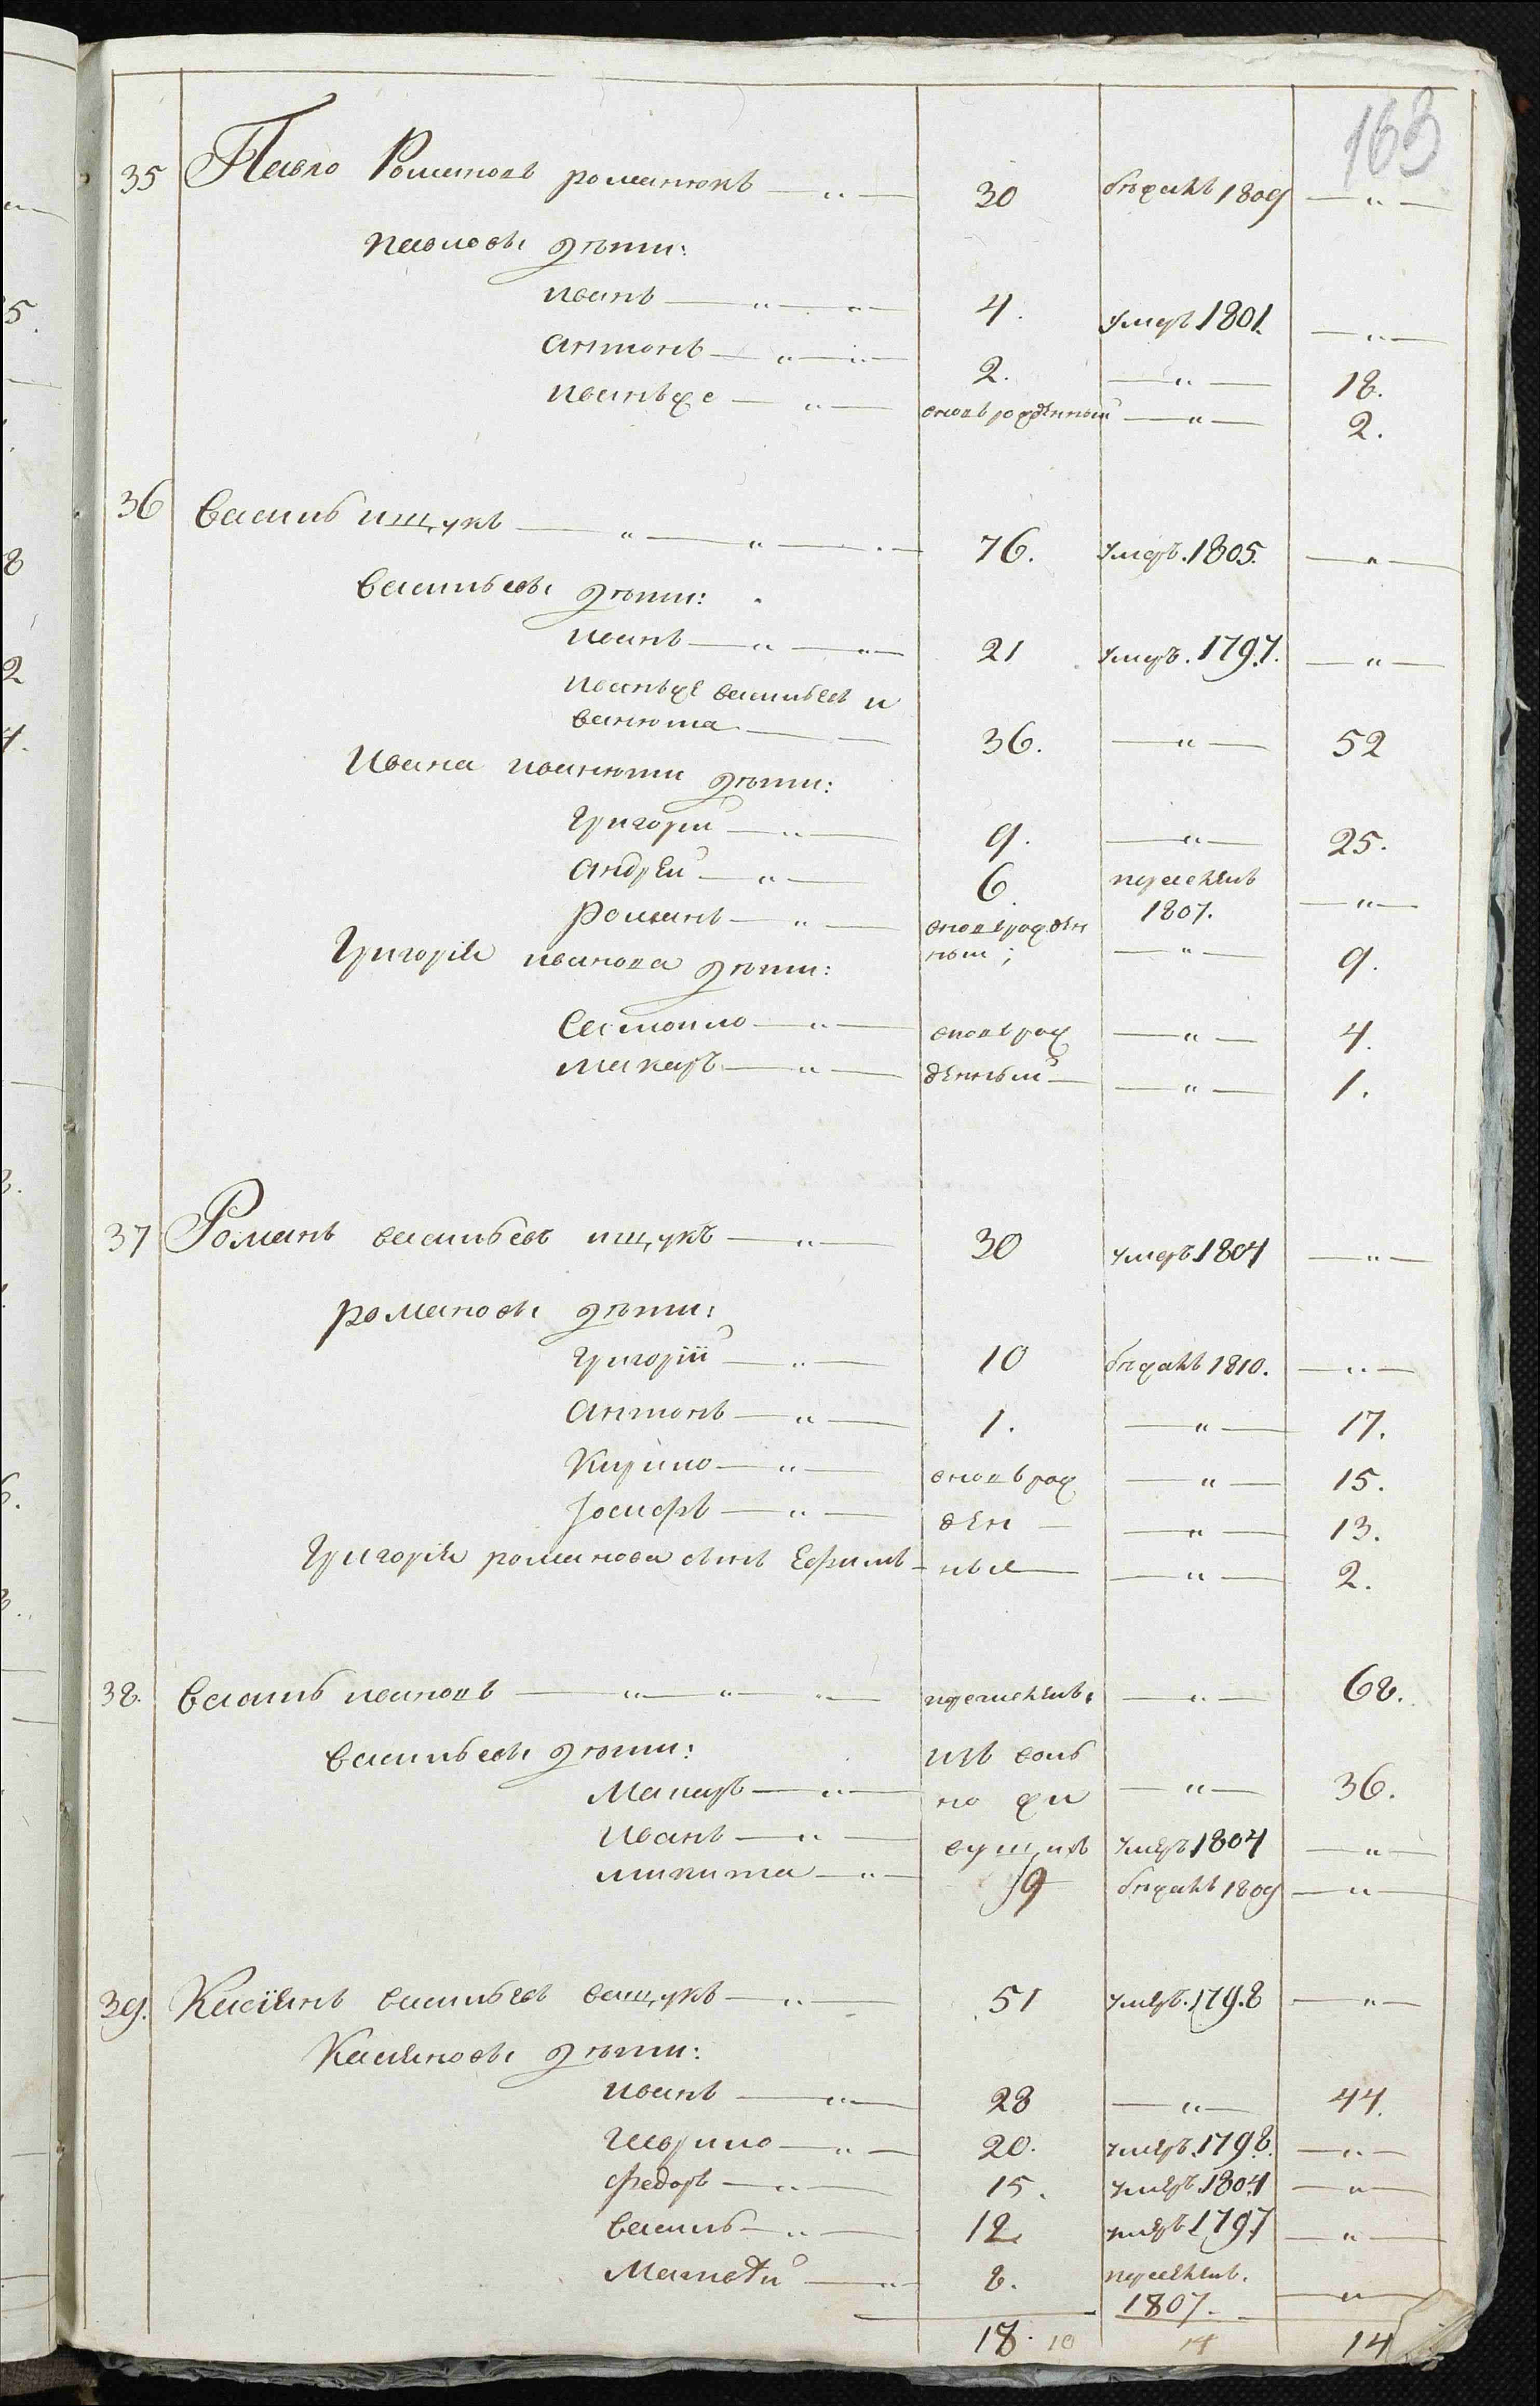 163
35 Павло Романовъ романюкъ — „ — 30 бѣжалъ 1809 — „ —
павловы дѣти:
иванъ — „ — „ — 4. умеръ 1801 — „ —
антонъ — „ — „ — 2. — „ — 18.
иванъже — „ — вновь рожденный — „ — 2.
36 василь ищукъ — „ — „ — 76. умеръ. 1805. — „ —
васильевы дѣти:
иванъ — „ — „ — 21 умеръ. 1797. — „ —
иванъже васильевъ и
ванюта — — 36. — „ — 52
Ивана иванюти дѣти:
григорій — „ — 9. — „ — 25.
андрей — „ — 6. перешелъ 1807. — „ —
романъ — „ — вновьрожден
ный; — „ — 9.
григорія иванова дѣти:
самойло — „ — вновь рож — „ — 4.
макаръ — „ — денный — — „ — 1.
37 Романъ васильевъ ищукъ — „ — 30 умеръ 1804 — „ —
романовы дѣти:
григорій — „ — 10 бѣжалъ 1810. — „ —
антонъ — „ — 1. — „ — 17.
Кирило — „ — вновь рож — „ — 15.
Іосифъ — „ — ден — — „ — 13.
григорія романова сынъ Ефимъ — ныя — — „ — 2.
38. василь ивановъ — „ — „ — „ — перешелъ — „ — 68.
васильевы дѣти: изъ воль
Макаръ — „ — но жи — „ — 36.
Иванъ — „ — вущихъ умеръ 1804 — „ —
микита — „ — 9 бѣжалъ 1809 — „ —
39. Касіянъ васильевъ ващукъ — „ — 51 умеръ. 1798 — „ —
Касіяновы дѣти:
иванъ — „ — 28 — „ — 44.
гаврило — „ — 20. умеръ. 1798. — „ —
федоръ — „ — 15. умеръ. 1804 — „ —
василь — „ — 12. умеръ 1797 — „ —
Матвѣй — „ — 8. перешелъ. 1807. — „ —
18. 10 14 14